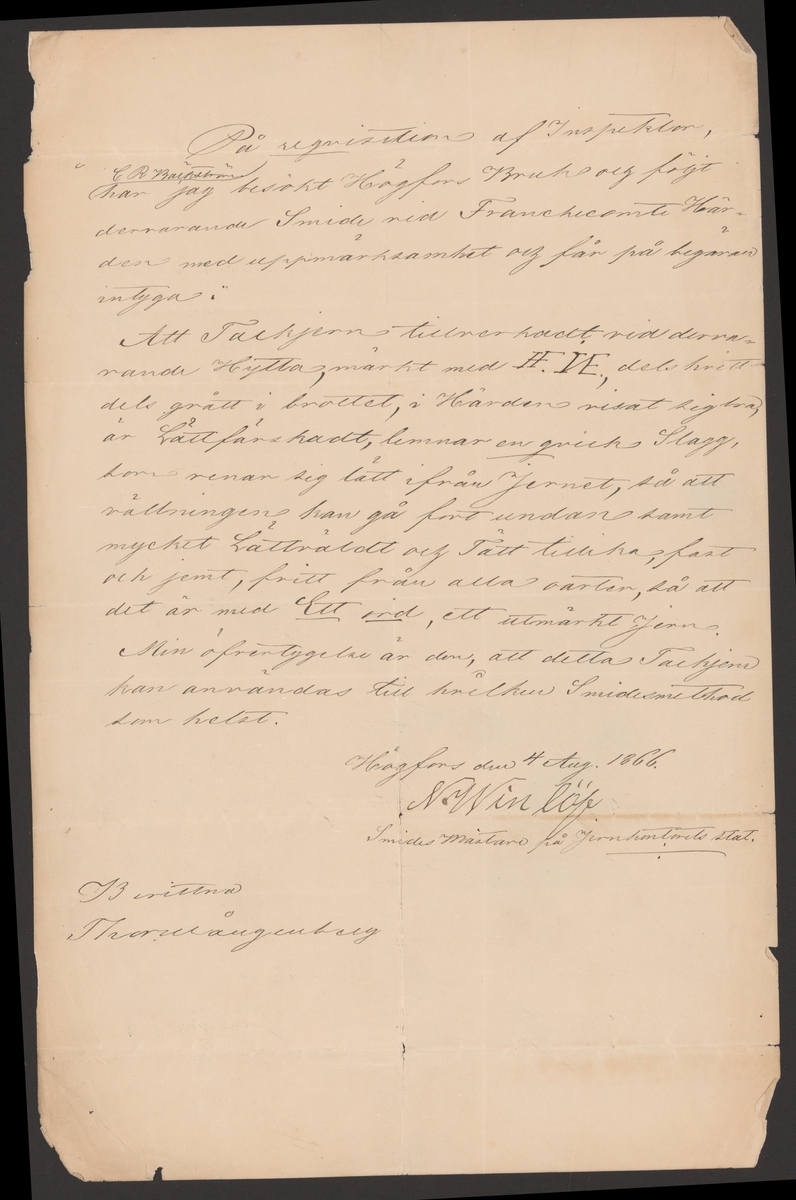 På requisition af Inspektor,
C R Bäckström
har jag besökt Högfors Bruk och följt
dervarande Smide vid Franchecomté Här-
den med uppmärksamhet och får på begäran
intyga:
Att Tackjern tillverkadt vid derva-
rande Hytta, märkt med H. V.E., dels hvitt
dels grått i brottet, i Härden visat sig bra,
är Lättfärskadt, lemnar en qvick Slagg,
som renar sig lätt ifrån Jernet, så att
vällningen kan gå fort undan samt
mycket Lättväldt och Tätt tillika, fast
och jemt, fritt från alla arter, så att
det är med Ett ord, ett utmärkt Jern.
Min öfvertygelse är den, att detta Tackjern
kan användas till hvilken Smidesmethod
som helst.
Högfors den 4 Aug. 1866.
N. Winlöf
Smides Mästare på Jernkontorets stat.
Bevittna